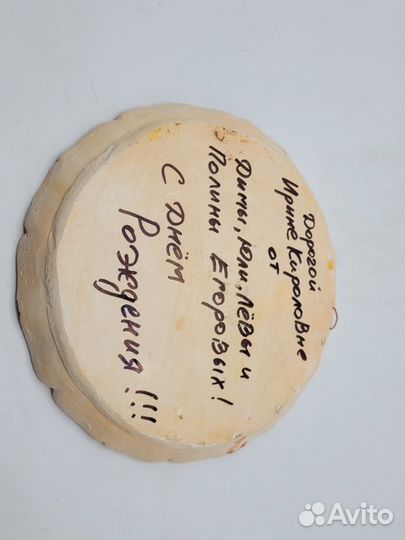 Дорогой
Ирине Кироловне
от
Димы, Юли, Лёвы и
Полины Егоровых!
С Днём
Рождения!!!
Avito